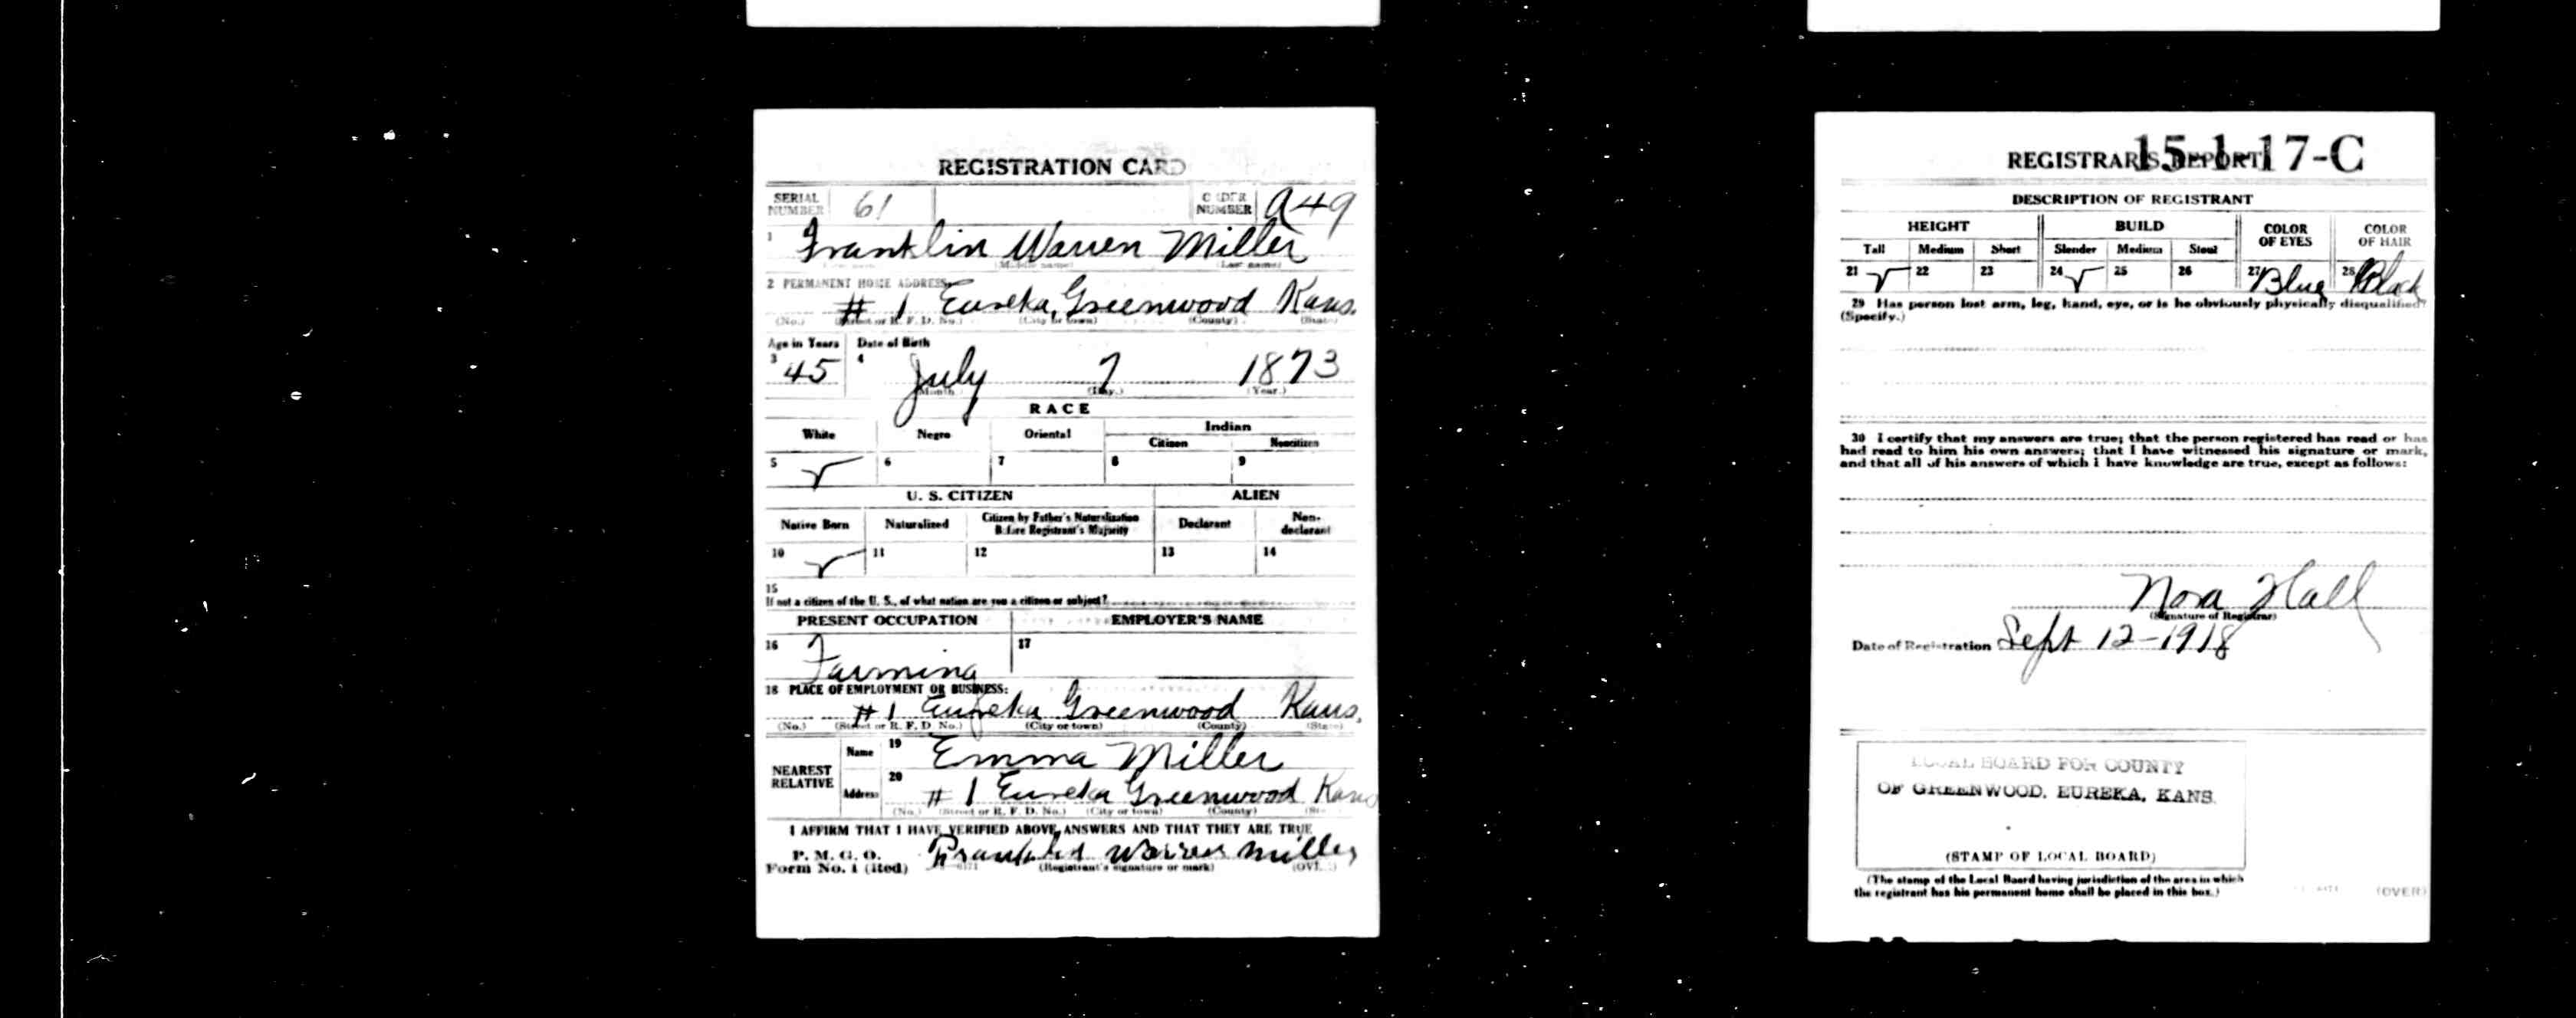 REGISTRATION CARD
SERIAL NUMBER 61 ORDER NUMBER A49
1 Franklin Warren Miller
(Middle name) (Last name)
2 PERMANENT HOME ADDRESS:
# 1 Eureka, Greenwood Kans.
(No.) (Street or R. F. D. No.) (City or town) (County) (State)
Age in Years Date of Birth
3 45 4 July 7 1873
(Month) (Day.) (Year.)
RACE
White Negro Oriental Indian
Citizen Noncitizen
5 ✓ 6 7 8 9
U. S. CITIZEN ALIEN
Native Born Naturalized Citizen by Father's Naturalization Before Registrant's Majority Declarant Non-declarant
10 ✓ 11 12 13 14
15
If not a citizen of the U. S., of what nation are you a citizen or subject?
PRESENT OCCUPATION EMPLOYER'S NAME
16 Farming 17
18 PLACE OF EMPLOYMENT OR BUSINESS:
# 1 Eureka Greenwood Kans.
(No.) (Street or R. F. D. No.) (City or town) (County) (State)
NEAREST RELATIVE Name 19 Emma Miller
Address 20 # 1 Eureka Greenwood Kans
(No.) (Street or R. F. D. No.) (City or town) (County)
I AFFIRM THAT I HAVE VERIFIED ABOVE ANSWERS AND THAT THEY ARE TRUE
P. M. G. O.
Form No. 1 (Red) Franklin Warren Miller
(Registrant's signature or mark) (OVER)
REGISTRAR'S REPORT 15-1-17-C
DESCRIPTION OF REGISTRANT
HEIGHT BUILD COLOR OF EYES COLOR OF HAIR
Tall Medium Short Slender Medium Stout
21 ✓ 22 23 24 ✓ 25 26 27 Blue 28 Black
29 Has person lost arm, leg, hand, eye, or is he obviously physically disqualified?
(Specify.)
30 I certify that my answers are true; that the person registered has read or has
had read to him his own answers; that I have witnessed his signature or mark,
and that all of his answers of which I have knowledge are true, except as follows:
Nora Hall
(Signature of Registrar)
Date of Registration Sept 12-1918
LOCAL BOARD FOR COUNTY
OF GREENWOOD, EUREKA, KANS.
(STAMP OF LOCAL BOARD)
(The stamp of the Local Board having jurisdiction of the area in which
the registrant has his permanent home shall be placed in this box.)
(OVER)